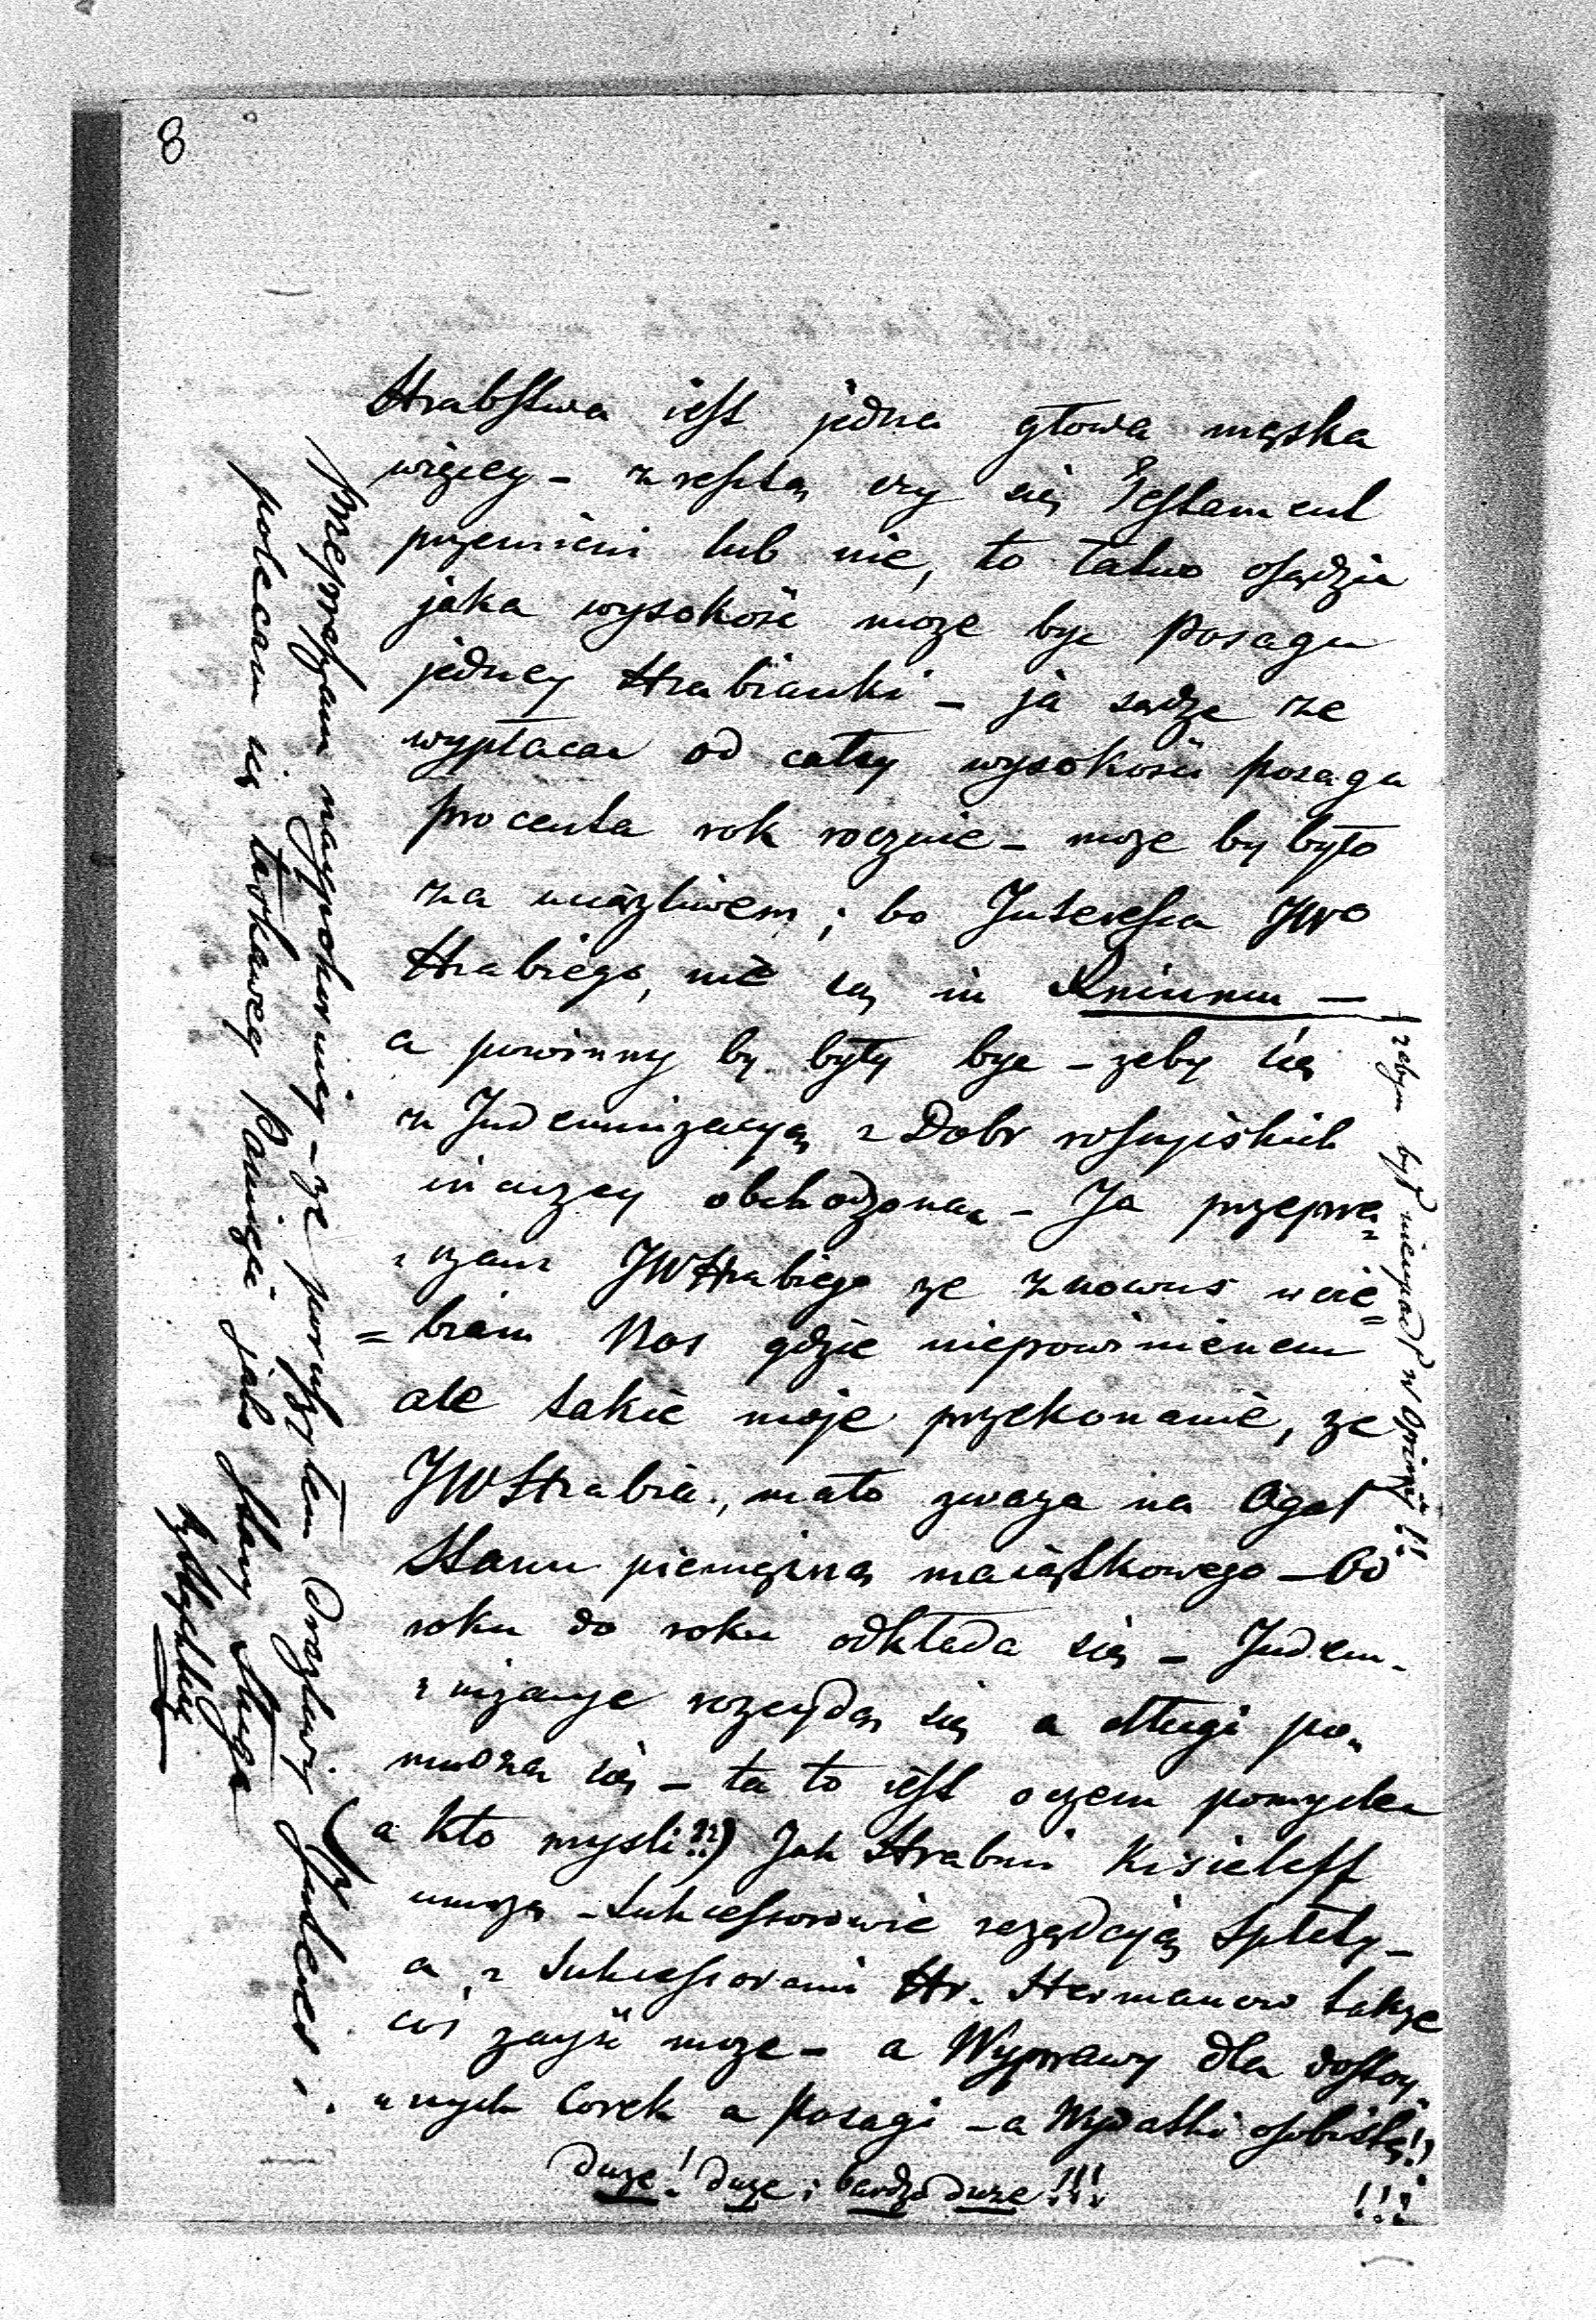 8
Hrabstwa iest jedna głowa męska
więcey - z resztą czy się Testament
przemieni lub nie, to łatwo osądzic
jaka wysokość moze byc Posagu
jedney Hrabianki - ja sądzę ze
wypłacac od całey wysokości posagu
procenta rok rocznie - moze by było
za uciązliwem; bo Interessa JWo
Hrabiego, nie są in
a powinny by były byc - zeby się
z Indemnizacyą z Dobr rossyiskich
inaczey obchodzona - Ja przepra=
=szam JWHrabiego ze znowus wcie=
=biam Nos gdzie niepowinienem
ale takie moje przekonanie, ze
JWHrabia, mało zwaza na Ogół
Stanu pieniężno maiątkowego - Od
roku do roku odkłada się - Indem-
=nizacye rozeydą się a długi po=
mnozą się - ta to iest o czem pomyslec
(a kto mysli?!!) Jak Hrabini Kisieleff
umrze - Sukcessorowie zeządają Spłaty -
a z Sukcessorami Hr. Hermanow takze
coś zayść moze - a Wyprawy dla dostoy=
=nych Corek a Posagi - a Wydatki osobiste!!
duze! duze i bardzo duze!!! !!!
zebym był nie wpadł w Opinię!!
Przepraszam naypokorniey - ze poruszyłem Drazliwy Interes.
polecam się łaskawey Pamięci jako Stary Sługa